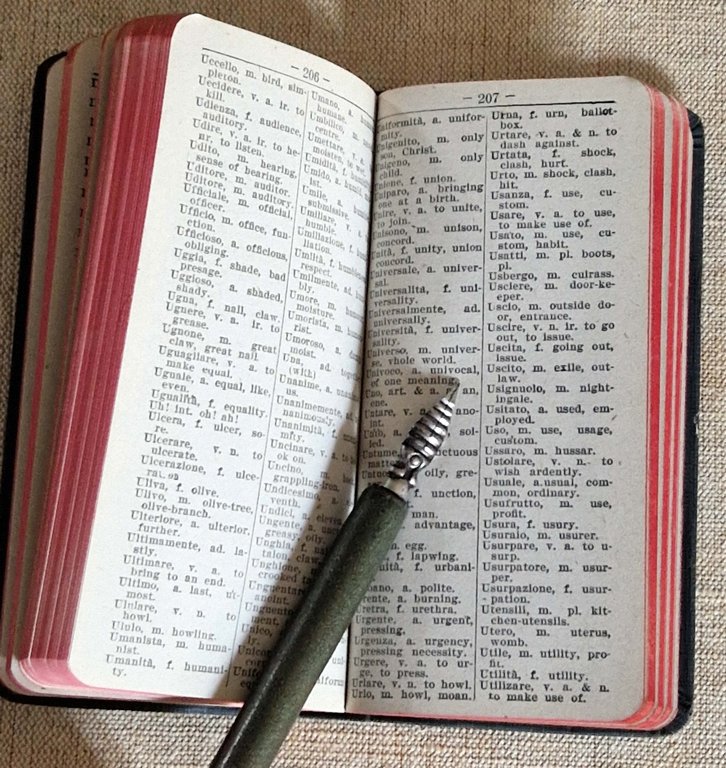 - 206 -
Uccello, m. bird, sim-
pleton.
Uccidere, v. a. ir. to
kill.
Udienza, f. audience,
auditory.
Udire, v. a. ir. to he-
ar, to listen.
Udito, m. hearing,
sense of hearing.
Uditore, m. auditor.
Uditore, m. auditory.
Ufficiale, m. official,
officer.
Ufficio, m. office, fun-
ction.
Ufficioso, a. officious,
obliging.
Uggia, f. shade, bad
presage.
Uggioso, a. shaded,
shady.
Ugna, f. nail, claw.
Ugnere, v. a. ir. to
grease.
Ugnone, m. great
claw, great nail.
Uguagliare, v. a. to
make equal.
Uguale, a. equal, like,
even.
Ugualità, f. equality.
Uh! int. oh! ah!
Ulcera, f. ulcer, so-
re.
Ulcerare, v. n. to
ulcerate.
Ulcerazione, f. ulce-
ration
Uliva, f. olive.
Ulivo, m. olive-tree,
olive-branch.
Ulteriore, a. ulterior,
further.
Ultimamente, ad. la-
stly.
Ultimare, v. a. to
bring to an end.
Ultimo, a. last, ut-
most.
Ululare, v. n. to
howl.
Ululo, m. howling.
Umanista, m. huma-
nist.
Umanità, f. humani-
ty.
Umano, a.
humane.
Umbilico, m.
centre.
Umettare,
moisten,
Umidità, f.
Umido, a. humid,
ist.
Umile, a.
submissive.
Umiliare, v.
humble.
Umiliazione, f.
liation.
Umiltà, f. humble
respect.
Umilmente, ad.
bly.
Umore, m.
moisture.
Umorista, m.
rist.
Umoroso, a.
moist.
Una, ad.
(with)
Unanime, a.
us.
Unanimemente, ad.
nanimously.
Unanimità, f.
mity.
Uncinare, v. a.
ok on.
Uncino, m.
grappling-iron.
Undicesimo, a.
venth.
Undici, a. eleven
Ungente, a.
greasy, oily
Unghia, f. nail
talon, claw
Unghione,
crooked
Unguentare
anoint.
Unguento
ment.
Unico,
ly.
- 207 -
Uniformità, a. unifor-
mity.
Unigenito, m. only
son, Christ.
Unigeno, m. only
child.
Unione, f. union.
Uniparo, a. bringing
one at a birth.
Unire, v. a. to unite,
to join.
Unisono, m. unison,
concord.
Unità, f. unity, union
concord.
Universale, a. univer-
sal.
Universalità, f. uni-
versality.
Universalmente, ad.
universally.
Università, f. univer-
sality.
Universo, m. univer-
se, whole world.
Univoco, a. univocal,
of one meaning.
Uno, art. & a. an,
one.
Untare, v. a. ano-
int.
sol-
led.
Untume, unctuous
matter
oily, gre-
f. unction,
man.
advantage,
m. egg.
f. lapwing.
f. urbani-
a. polite.
a. burning.
f. urethra.
Urgente, a. urgent,
pressing.
Urgenza, a. urgency,
pressing necessity.
Urgere, v. a. to ur-
ge, to press.
Urlare, v. n. to howl.
Urlo, m. howl, moan.
Urna, f. urn, ballot-
box.
Urtare, v. a. & n. to
dash against.
Urtata, f. shock,
clash, hurt.
Urto, m. shock, clash,
hit.
Usanza, f. use, cu-
stom.
Usare, v. a. to use,
to make use of.
Usato, m. use, cu-
stom, habit.
Usatti, m. pl. boots,
pl.
Usbergo, m. cuirass.
Usciere, m. door-ke-
eper.
Uscio, m. outside do-
or, entrance.
Uscire, v. n. ir. to go
out, to issue.
Uscita, f. going out,
issue.
Uscito, m. exile, out-
law.
Usignuolo, m. night-
ingale.
Usitato, a. used, em-
ployed.
Uso, m. use, usage,
custom.
Ussaro, m. hussar.
Ustolare, v. n. to
wish ardently.
Usuale, a.usual, com-
mon, ordinary.
Usufrutto, m. use,
profit.
Usura, f. usury.
Usuraio, m. usurer.
Usurpare, v. a. to u-
surp.
Usurpatore, m. usur-
per.
Usurpazione, f. usur-
pation.
Utensili, m. pl. kit-
chen-utensils.
Utero, m. uterus,
womb.
Utile, m. utility, pro-
fit.
Utilità, f. utility.
Utilizare, v. a. & n.
to make use of.